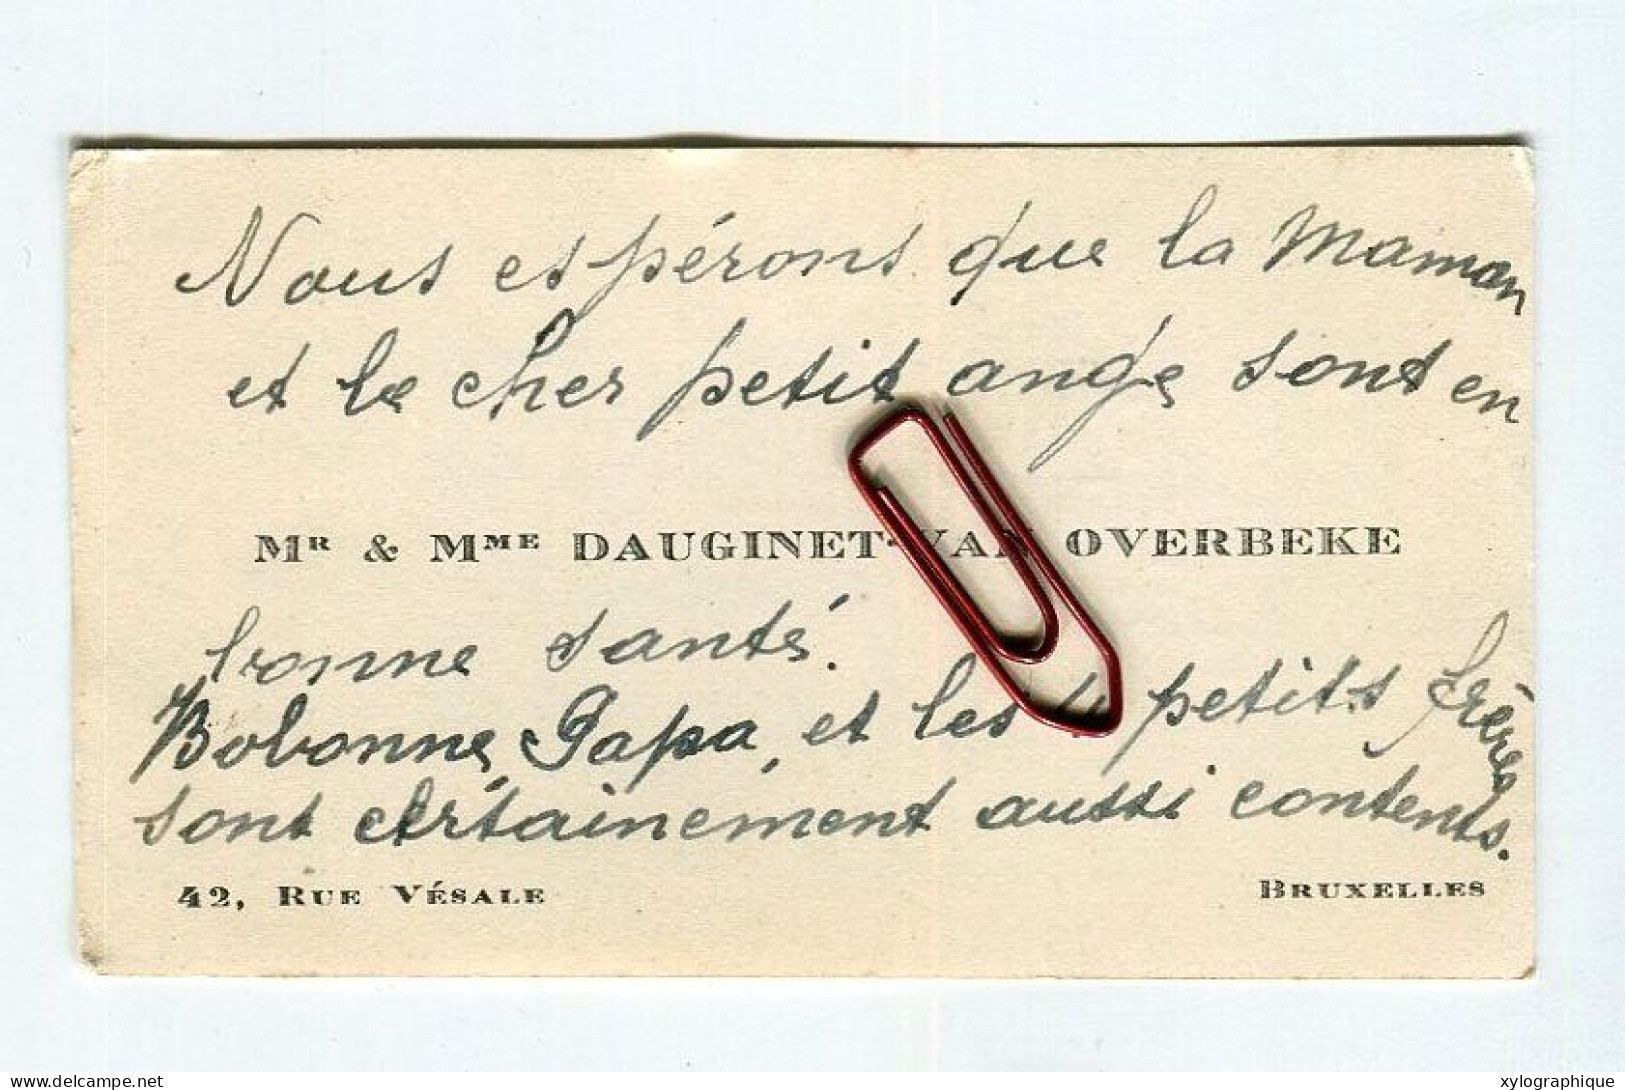 Nous espérons que la Maman
et le cher petit ange sont en
MR & MME DAUGINET-VAN OVERBEKE
bonne santé.
Bobonne, Papa, et les 4 petits frères
sont certainement aussi contents.
42, RUE VÉSALE BRUXELLES
delcampe.net xylographique